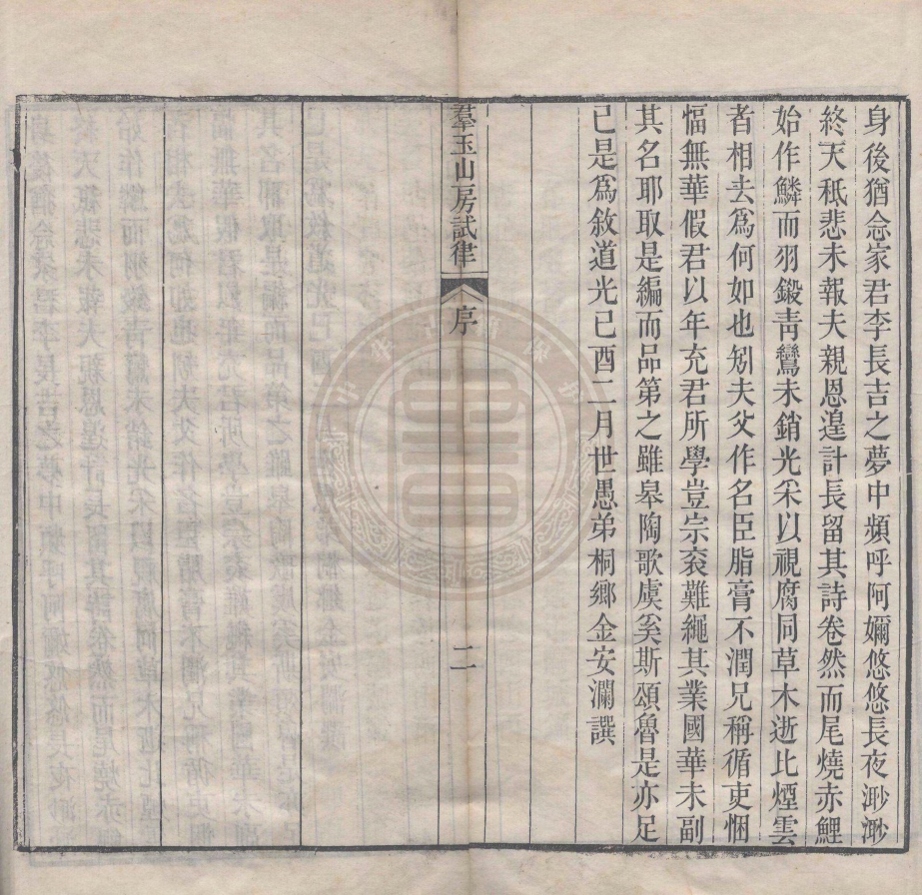 身後猶念家君李長吉之夢中頻呼阿㜷悠悠長夜渺渺
終天秪悲未報夫親恩遑計長留其詩卷然而尾燒赤鯉
始作鱗而羽鎩青鸞未銷光采以視腐同草木逝比煙雲
者相去爲何如也矧夫父作名臣脂膏不潤兄稱循吏悃
愊無華假君以年充君所學豈宗衮難繩其業國華未副
其名耶取是編而品第之雖皋陶歌虞奚斯頌魯是亦足
已是爲敘道光己酉二月世愚弟桐鄉金安瀾譔
羣玉山房試律 序 二